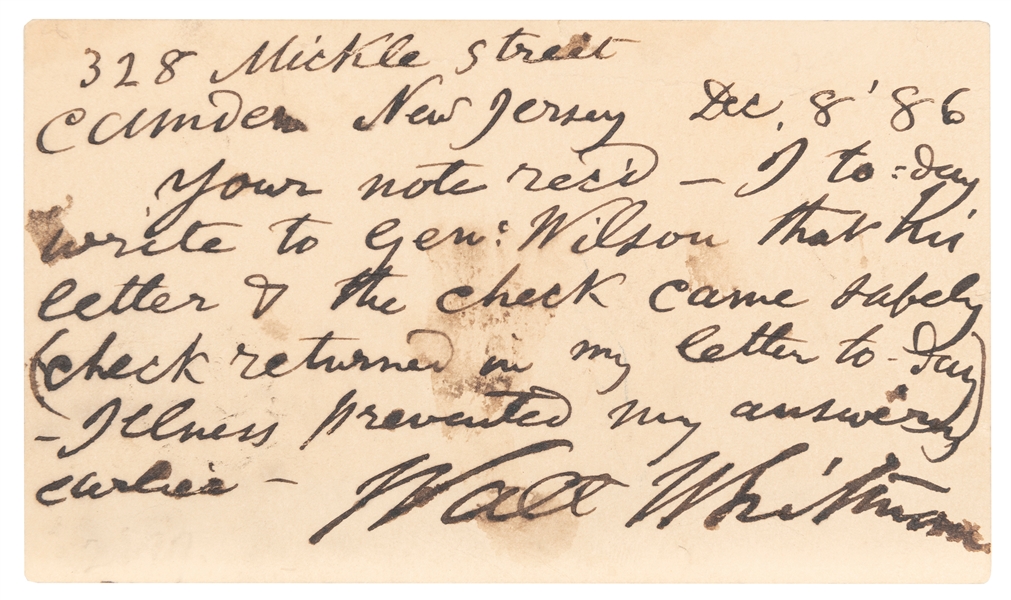 328 Mickle Street
Camden New Jersey Dec. 8 '86
Your note rec'd – I to-day
write to Gen: Wilson that his
letter & the check came safely
(check returned in my letter to-day)
– Illness prevented my answering
earlier – Walt Whitman